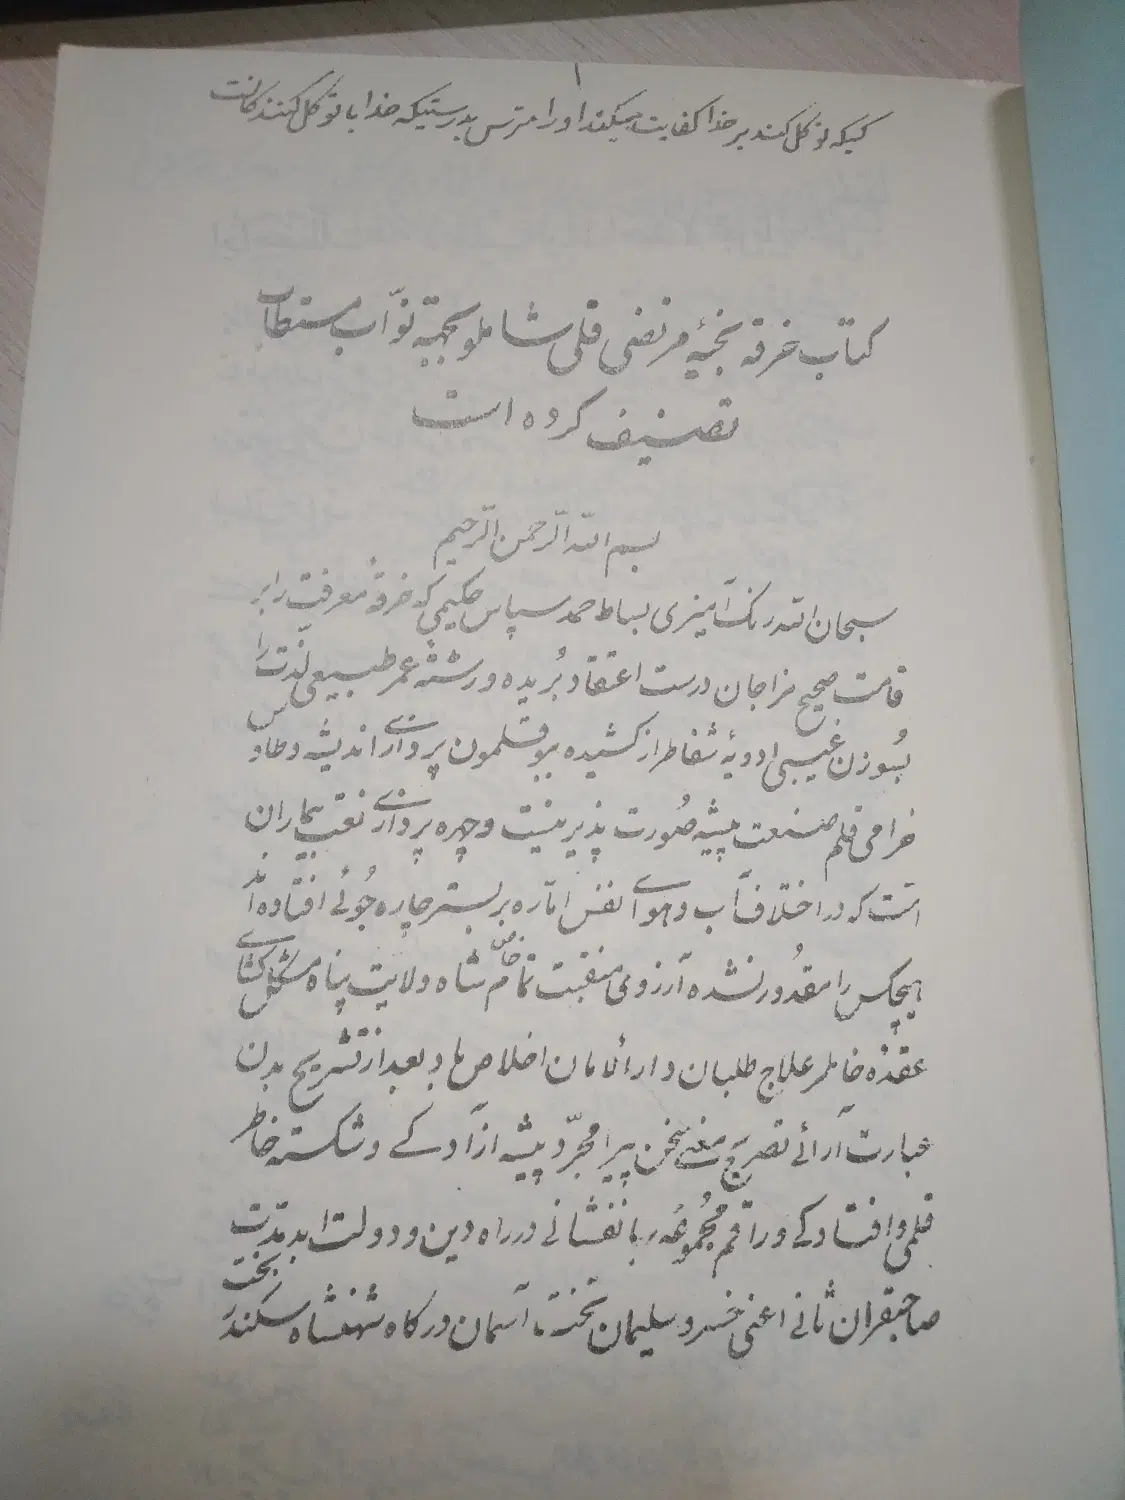 ۱
کسیکه توکل کند بر خدا کفایت میکند او را مترس بدرستیکه خدا با توکل کنندکانت
کتاب خرقه بخیهٔ مرتضی قلی شاملو بجهته نوّاب مستطاب
تصنیف کرده است
بسم الله الرّحمن الرّحیم
سبحان الله رنک آمیزی بساط حمد سپاس حکیمی که خرقهٔ معرفت را بر
قامت صحیح مزاجان درست اعتقاد بُریده و رشتهٔ عمر طبیعی لذّت را
بسُوزن عیسی ادویهٔ شفا طراز کشیده ببوقلمون پردازی اندیشه و طاوس
خرامی قلم صنعت پیشه صُورت پذیر نیست و چهره پردازی نقب بیماران
است که در اختلاف آب و هوای نفس امّاره بر بستر چاره جُوئی افتاده اند
هیچکس را مقدُور نشده آرزومی منقبت خاص شاه ولایت پناه مشکل کشای
عقدهٔ خاطر علاج طلبان دار الامان اخلاص ما و بعد از تشریح بدن
عبارت آرائے تصریح معنے سخن پیرا مجرّد پیشه ازآدکے و شکسته خاطر
قلمی وافتادکے و راقم مجمُوعهٔ ربانفشانے در راه دین و دولت ابد مدّت
صاحبقران ثانے اعنی خسرو سلیمان تخت آسمان درکاه شهنشاه سکندر بخت